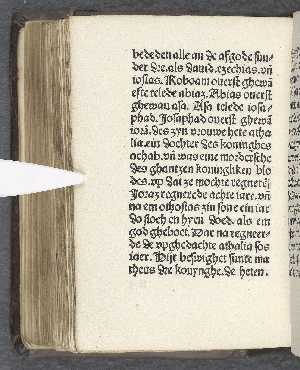 bededen alle an de afgode sun-
der dre. als dauid. ezechias. vn̄
iosias. Roboam ouerst ghewā
efte telede abiaz. Abias ouerst
ghewan asa. Asa telede iosa-
phad. Josaphad ouerst ghewā
iorā. des zyn vrouwe hete atha
lia. ein dochter des koninghes
achab. vn̄ was eine mordersche
des ghantzen koningliken blo
des. vp dat ze mochte regnerē
Joraz regnerede achte iare. vn̄
na em othosias zin sone ein iar
do sloch en hyeu doed. als em
god gheboet. Dar na regneer-
de de vpghedachte athalia sos
iaer. Hijr beswighet sunte ma
theus dre konynghe. de heten.